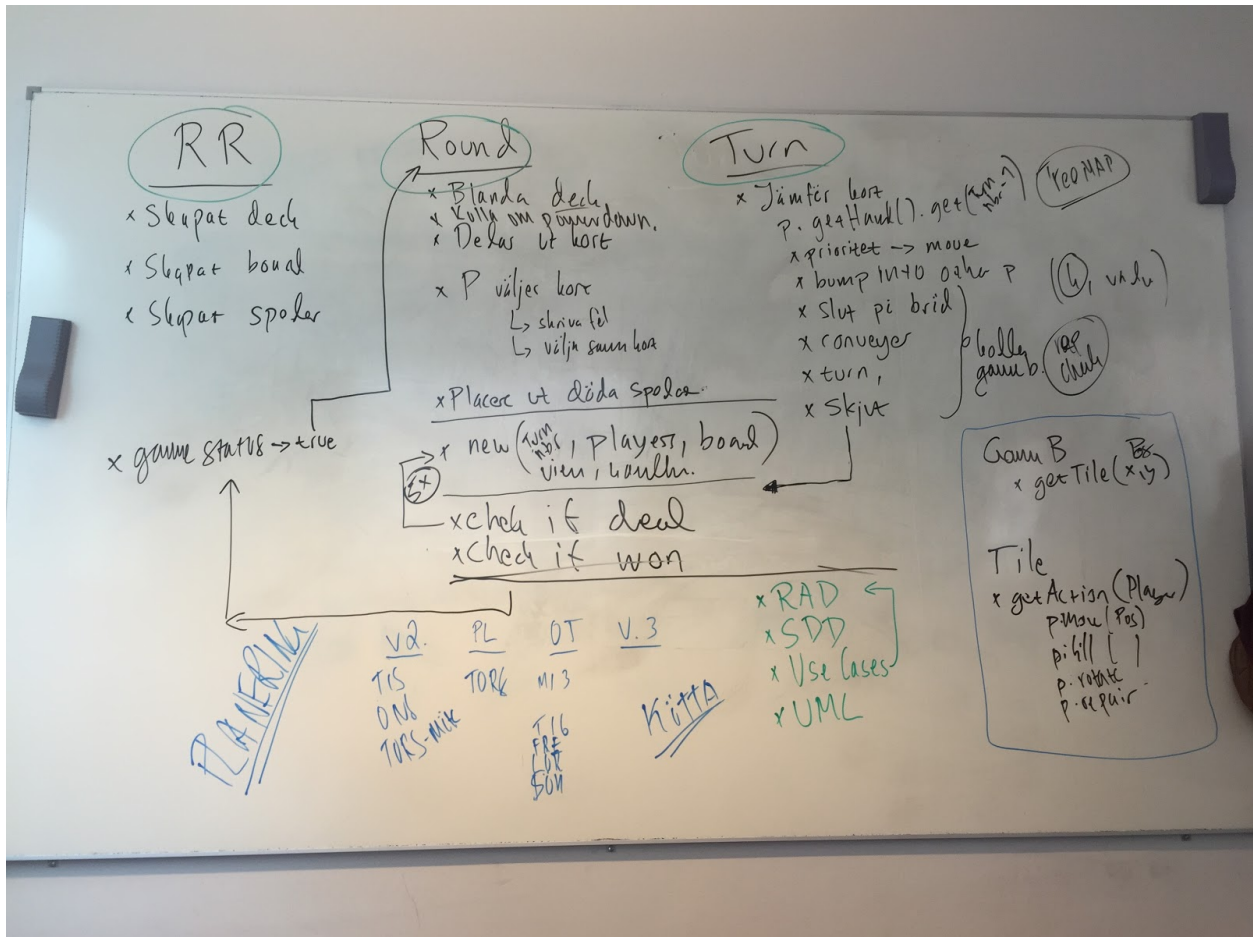 RR
* Skapat deck
* Skapat board
* Skapar spelar
* game status → true
Round
* Blanda deck
* Kolla om powerdown.
* Delas ut kort
* P väljer kort
↳ skriva fel
↳ välja samma kort
* Placera ut döda spelar.
* new (Turn nbr, players, board
view,
5x
* check if dead
* check if won
Turn
* Jämför kort
p. getHand().get(Turn nbr-1)
* prioritet → move
* bump into other p
* Slut på bräd
* conveyer
* turn,
* Skjut
kolla
game b.
TreeMAP
(k, value)
rep
check
Game B
Pos
* getTile(x,y)
Tile
* getAction(Player)
p.move(Pos)
p.kill [ ]
p.rotate
p.repair
PLANERING
V2.
TIS
ONS
TORS-MÖTE
PL
TORS
OT
M13
T16
FRE
LÖR
SÖN
V.3
* RAD
* SDD
* Use Cases
* UML